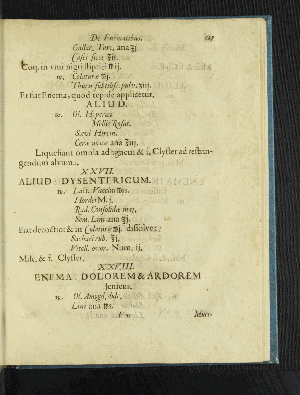 De Enematibus.
Gallar. Turc. ana ʒj.
Coq. in vini nigri stiptici ℔ij.
℞. Colaturæ ℔j.
Et fiat Enema, quod tepidè applicetur.
ALIUD.
℞. Ol. Hyperici
Mellis Rosat.
Sevi Hircin.
Ceræ novæ ana ℥iij.
Liquefiant omnia ad ignem & f. Clyster ad restringendum alvum.
XXVII.
ALIUD DYSENTERICUM.
℞. Lact. Vaccini
Hordei M. j.
Rad. Consolidæ maj.
Sem. Lini ana ℥j.
Fiat decoctio: & in Colaturæ ℔j. dissolve:
Sachari rub. ℥j.
Vitell. ovor. Num. ij.
Misc. & f. Clyster.
XXVIII.
ENEMA DOLOREM & ARDOREM
leniens.
℞. Ol. Amygd. dulc.
Lini ana
Muci-